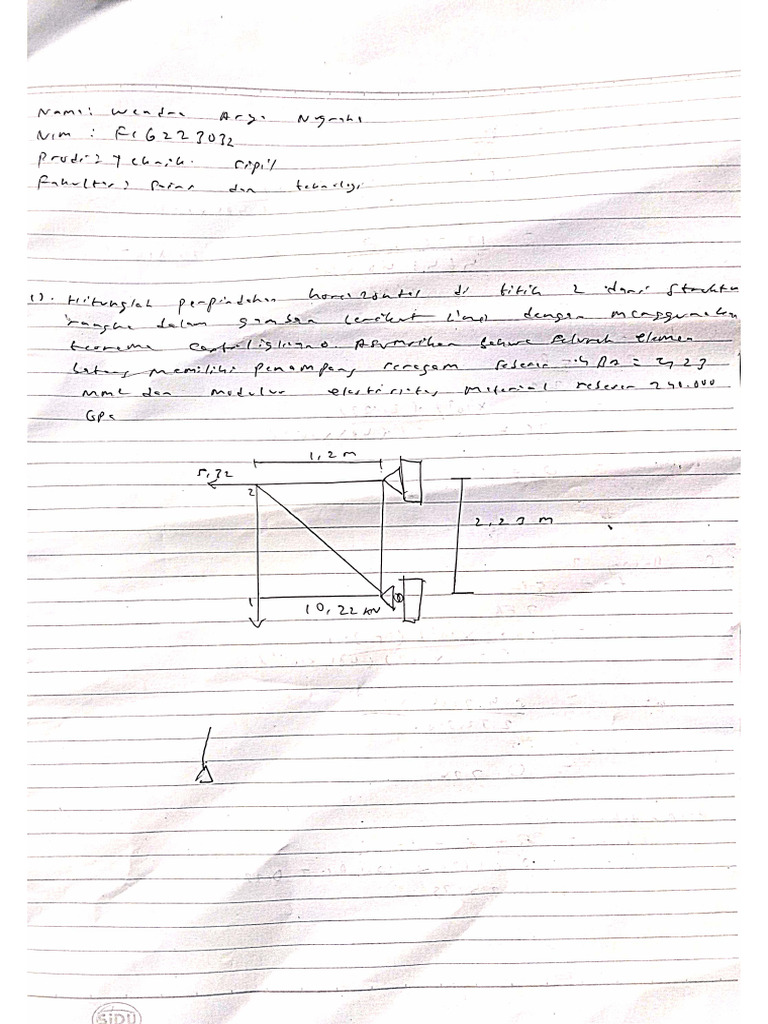 Nama : Wendra Arya Nugraha
Nim : F1G223032
Prodi : Teknik sipil
Fakultas : Sains dan teknologi
1). Hitunglah perpindahan horizontal di titik 2 dari Struktur
rangka dalam gambar berikut dengan menggunakan
teorema Castiligliano. Asumsikan bahwa seluruh elemen
batang memiliki penampang seragam sebesar
mm2 dan modulus elastisitas material sebesar 240.000
Gpa
1,2 m
5,32
2
2,23 m
1
10,22 kN
SIDU